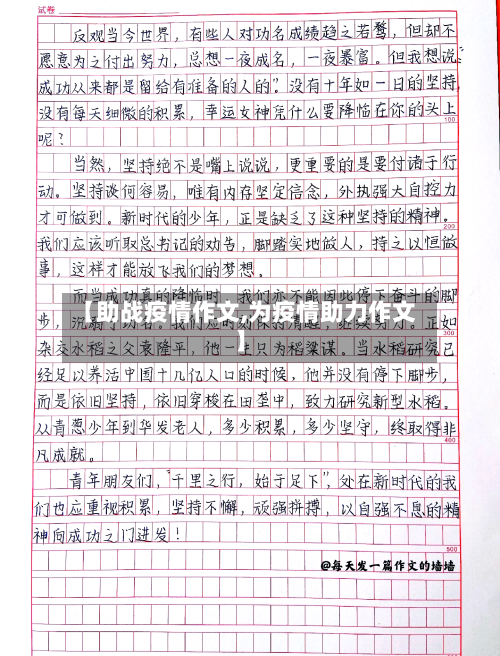 试卷
反观当今世界，有些人对功名成绩趋之若鹜，但却不
愿意为之付出努力，总想一夜成名，一夜暴富。但我想说：
成功从来都是留给有准备的人的”。没有十年如一日的坚持，
没有每天细微的积累，幸运女神凭什么要降临在你的头上
100
呢？
当然，坚持绝不是嘴上说说，更重要的是要付诸于行
动。坚持谈何容易，唯有内存坚定信念，外执强大自控力
才可做到。新时代的少年，正是缺乏了这种坚持的精神。
200
我们应该听取总书记的劝告，脚踏实地做人，持之以恒做
事，这样才能放飞我们的梦想。
而当成功真的降临时，我们亦不能因此停下奋斗的脚
【助战疫情作文,为疫情助力作文
步，
正如
300
】
杂交水稻之父袁隆平，他一上只为稻粱谋。当水稻研究已
经足以养活中国十几亿人口的时候，他并没有停下脚步，
而是依旧坚持，依旧穿梭在田垄中，致力研究新型水稻。
从青葱少年到华发老人，多少积累，多少坚守，终取得非
400
凡成就。
青年朋友们，“千里之行，始于足下”，处在新时代的我
们也应重视积累，坚持不懈，顽强拼搏，以自强不息的精
神向成功之门进发！
500
@每天发一篇作文的墙墙